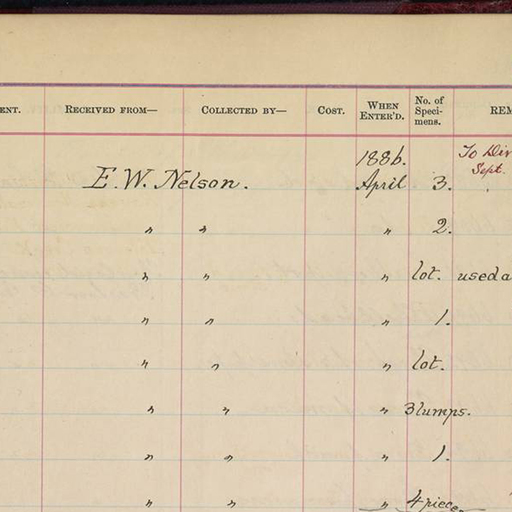 ENT. RECEIVED FROM— COLLECTED BY— COST. WHEN ENTER'D. No. of Speci-mens. REM
1886. To Div
E. W. Nelson. April 3. Sept.
" " " 2.
" " " lot. used a
" " " 1.
" " " lot.
" " " 3 lumps.
" " " 1.
" " " 4 pieces